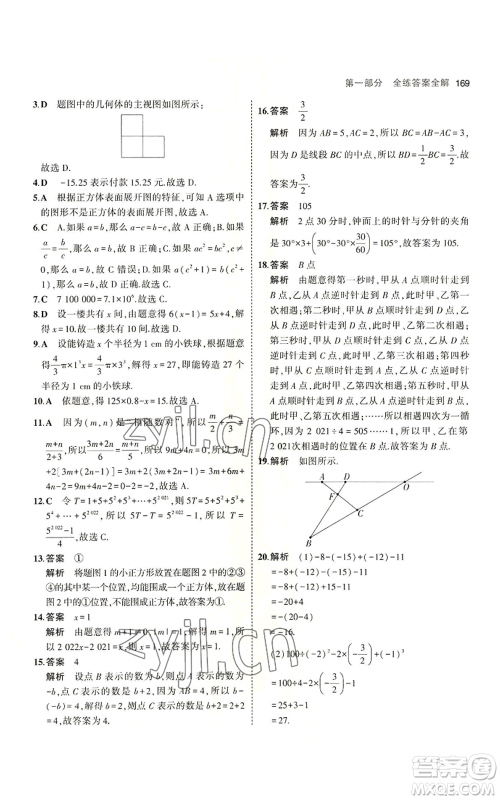 第一部分 全练答案全解 169
3.D 题图中的几何体的主视图如图所示:
故选 D.
4.D -15.25 表示付款 15.25 元.故选 D.
5.A 根据正方体表面展开图的特征,可知 A 选项中
的图形不是正方体的展开图.故选 A.
6.C A.如果 a=b,那么 a+c=b+c,故 A 正确;B.如果
a/c=b/c,那么 a=b,故 B 正确;C.如果 ac²=bc²,c≠
0,那么 a=b,故 C 错误;D.如果 a=b,那么 ac²=
bc²,故 D 正确.故选 C.
7.C 7 100 000=7.1×10⁶.故选 C.
8.D 设一楼共有 x 间房,由题意得 6(x-1)=5x+4,解
得 x=10.故一楼共有 10 间房.故选 D.
9.A 设能铸造 x 个半径为 1 cm 的小铁球,根据题意
得 4/3π×1³x=4/3π×3³,解得 x=27,即能铸造 27 个
半径为 1 cm 的小铁球.
10.A 依题意,得 125×0.8-x=15.故选 A.
11.A 因为(m,n)是“相伴数对”,所以 m/2+n/3=
m+n/2+3,所以 3m+2n/6=m+n/5,所以 9m+4n=0,所以 3m
+2[3m+(2n-1)]=3m+6m+4n-2=9m+4n-2=
-2,故选 A.
12.C 令 T=1+5+5²+5³+…+5²⁰²¹,则 5T=5+5²+5³+
5⁴+…+5²⁰²²,所以 5T-T=5²⁰²²-1,所以 T=
5²⁰²²-1/4,故选 C.
13.答案 ①
解析 将题图 1 的小正方形放置在题图 2 中的②③
④的其中某一个位置,均能围成正方体,放在题图 2
中的①位置,不能围成正方体,故答案为①.
14.答案 x=1
解析 由题意得 m+1≠0,|m|=1,解得 m=1,所以
2 022x-2 022=0,解得 x=1,故答案为 x=1.
15.答案 4
解析 设点 B 表示的数为 b,则点 A 表示的数为-b,
因为 AB=8,且点 A 在点 B 的左侧,所以 b-(-b)=8,
解得 b=4,即点 B 表示的数为 4.故答案为 4.
16.答案 3/2
解析 因为 AB=5,AC=2,所以 BC=AB-AC=3,因
为 D 是线段 BC 的中点,所以 BD=1/2BC=3/2.故答
案为3/2.
17.答案 105
解析 2 点 30 分时,钟面上的时针与分针的夹角
是 30°×3+(30°-30°×30/60)=105°,故答案为 105.
18.答案 B 点
解析 由题意得第一秒时,甲从 A 点顺时针走到
B 点,乙从 C 点逆时针走到 B 点,甲、乙第一次在 B
点相遇;第二秒时,甲从 B 点顺时针走到 C 点,乙从
B 点逆时针走到 A 点;第三秒时,甲从 C 点顺时针
走到 D 点,乙从 A 点逆时针走到 D 点,甲、乙第二
次在 D 点相遇;第四秒时,甲从 D 点顺时针走到 A
点,乙从 D 点逆时针走到 C 点;第五秒时,甲从 A
点顺时针走到 B 点,乙从 C 点逆时针走到 B 点,甲、
乙第三次在 B 点相遇;……所以每四秒为一循
环,因为 2 021÷4=505……1,所以甲、乙在第
2 021次相遇时的位置在 B 点.故答案为 B 点.
19.解析 如图所示.
A D O
F
C
B
20.解析 (1)-8-(-15)+(-9)-(+14)
=-8+15-9-14
=-(20-4)
=-16.
(2)100÷(-2)²-(-2)÷(-3/2)+(-1)³
=100÷4-2÷(-3/2)…
=25+3-1
=27.
zyjl.cn
zyjl.cn
答案圈
MXQE.COM